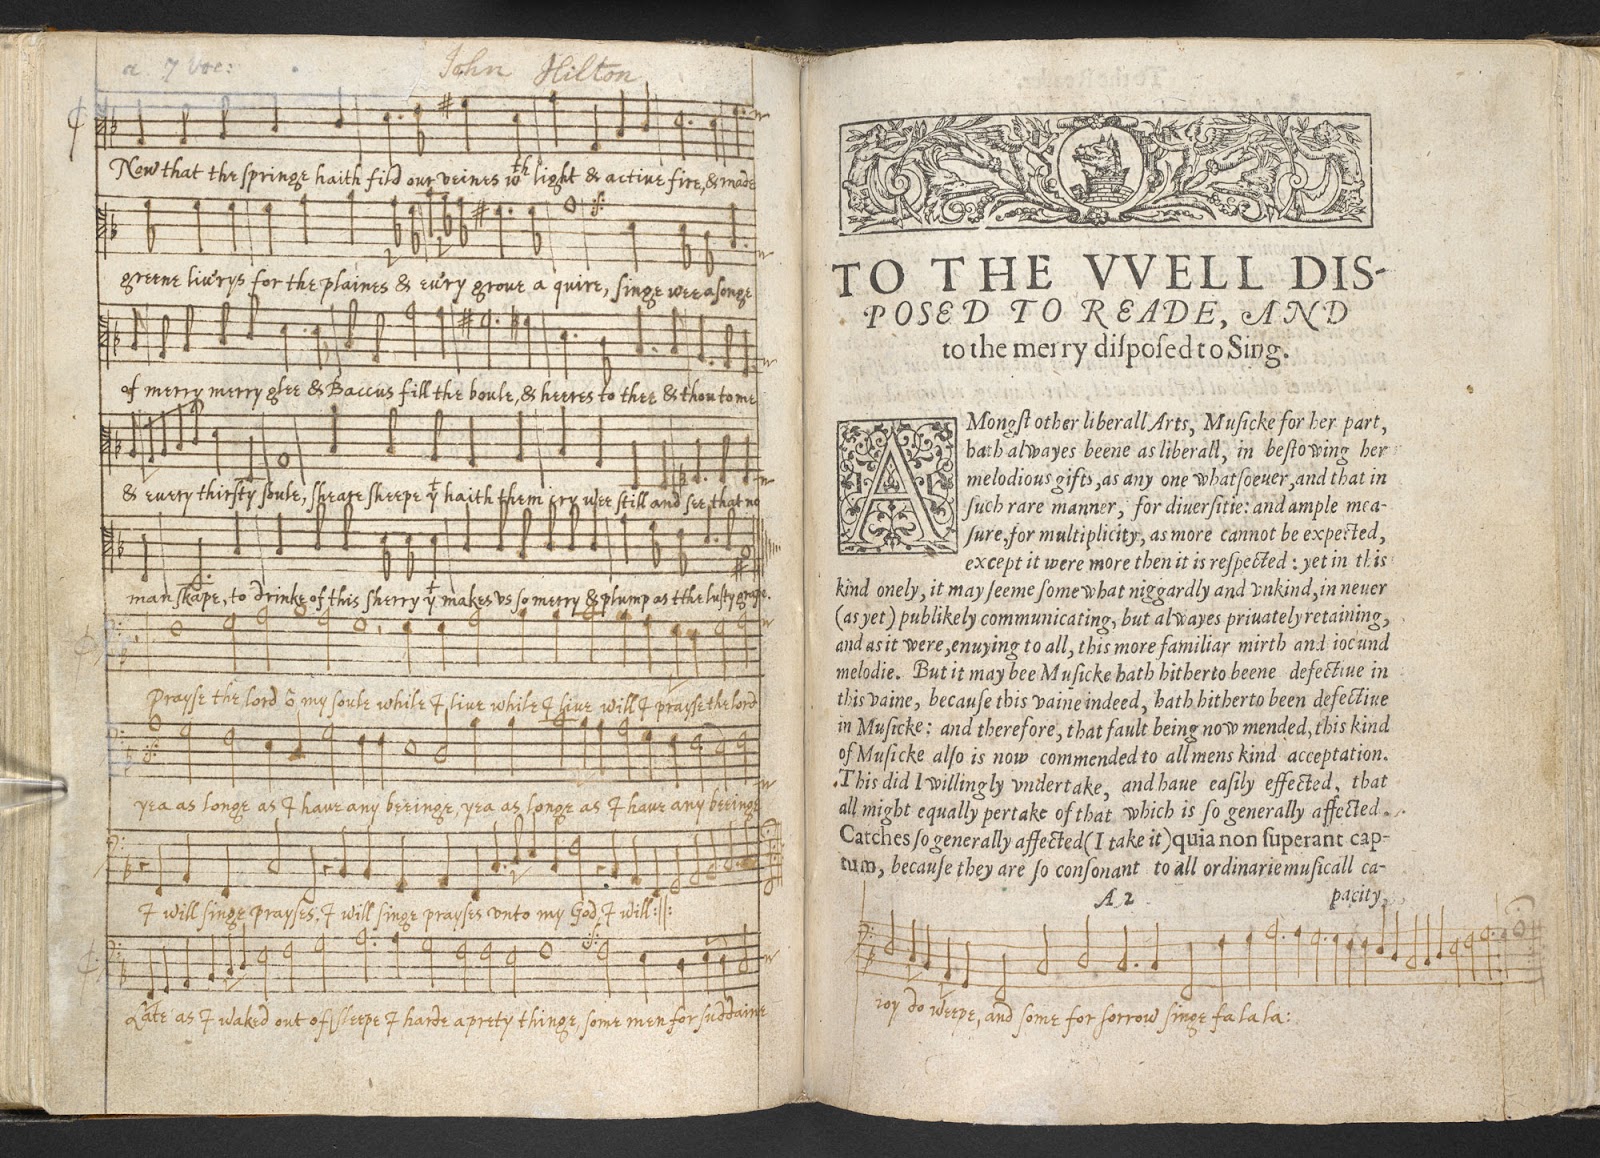 a 7 voc:
John Hilton
Now that the springe haith fild our veines wth light & active fire, & made
greene liv'rys for the plaines & ev'ry grove a quire, singe wee a songe
of merry merry glee & Baccus fill the boule, & heeres to thee & thou to me
& every thirsty soule, sheare sheepe yt haith them cry wee still and see that no
man skape, to drinke of this sherry yt makes us so merry & plump as the lusty grape.
Prayse the lord ô my soule while I live while I live will I praysse the lord
yea as longe as I have any beeinge, yea as longe as I have any beeinge
I will singe praysses, I will singe praysses unto my God, I will :||:
Late as I waked out of sleepe I harde a prety thinge, some men for suddaine
TO THE VVELL DIS-
POSED TO READE, AND
to the merry disposed to Sing.
AMongst other liberall Arts, Musicke for her part,
hath alwayes beene as liberall, in bestowing her
melodious gifts, as any one whatsoeuer, and that in
such rare manner, for diuersitie: and ample mea-
sure, for multiplicity, as more cannot be expected,
except it were more then it is respected: yet in this
kind onely, it may seeme somewhat niggardly and vnkind, in neuer
(as yet) publikely communicating, but alwayes priuately retaining,
and as it were, enuying to all, this more familiar mirth and iocund
melodie. But it may bee Musicke hath hitherto beene defectiue in
this vaine, because this vaine indeed, hath hitherto been defectiue
in Musicke: and therefore, that fault being now mended, this kind
of Musicke also is now commended to all mens kind acceptation.
This did I willingly vndertake, and haue easily effected, that
all might equally pertake of that which is so generally affected.
Catches so generally affected (I take it) quia non superant cap-
tum, because they are so consonant to all ordinarie musicall ca-
A 2 pacity,
ioy do weepe, and some for sorrow singe fa la la: